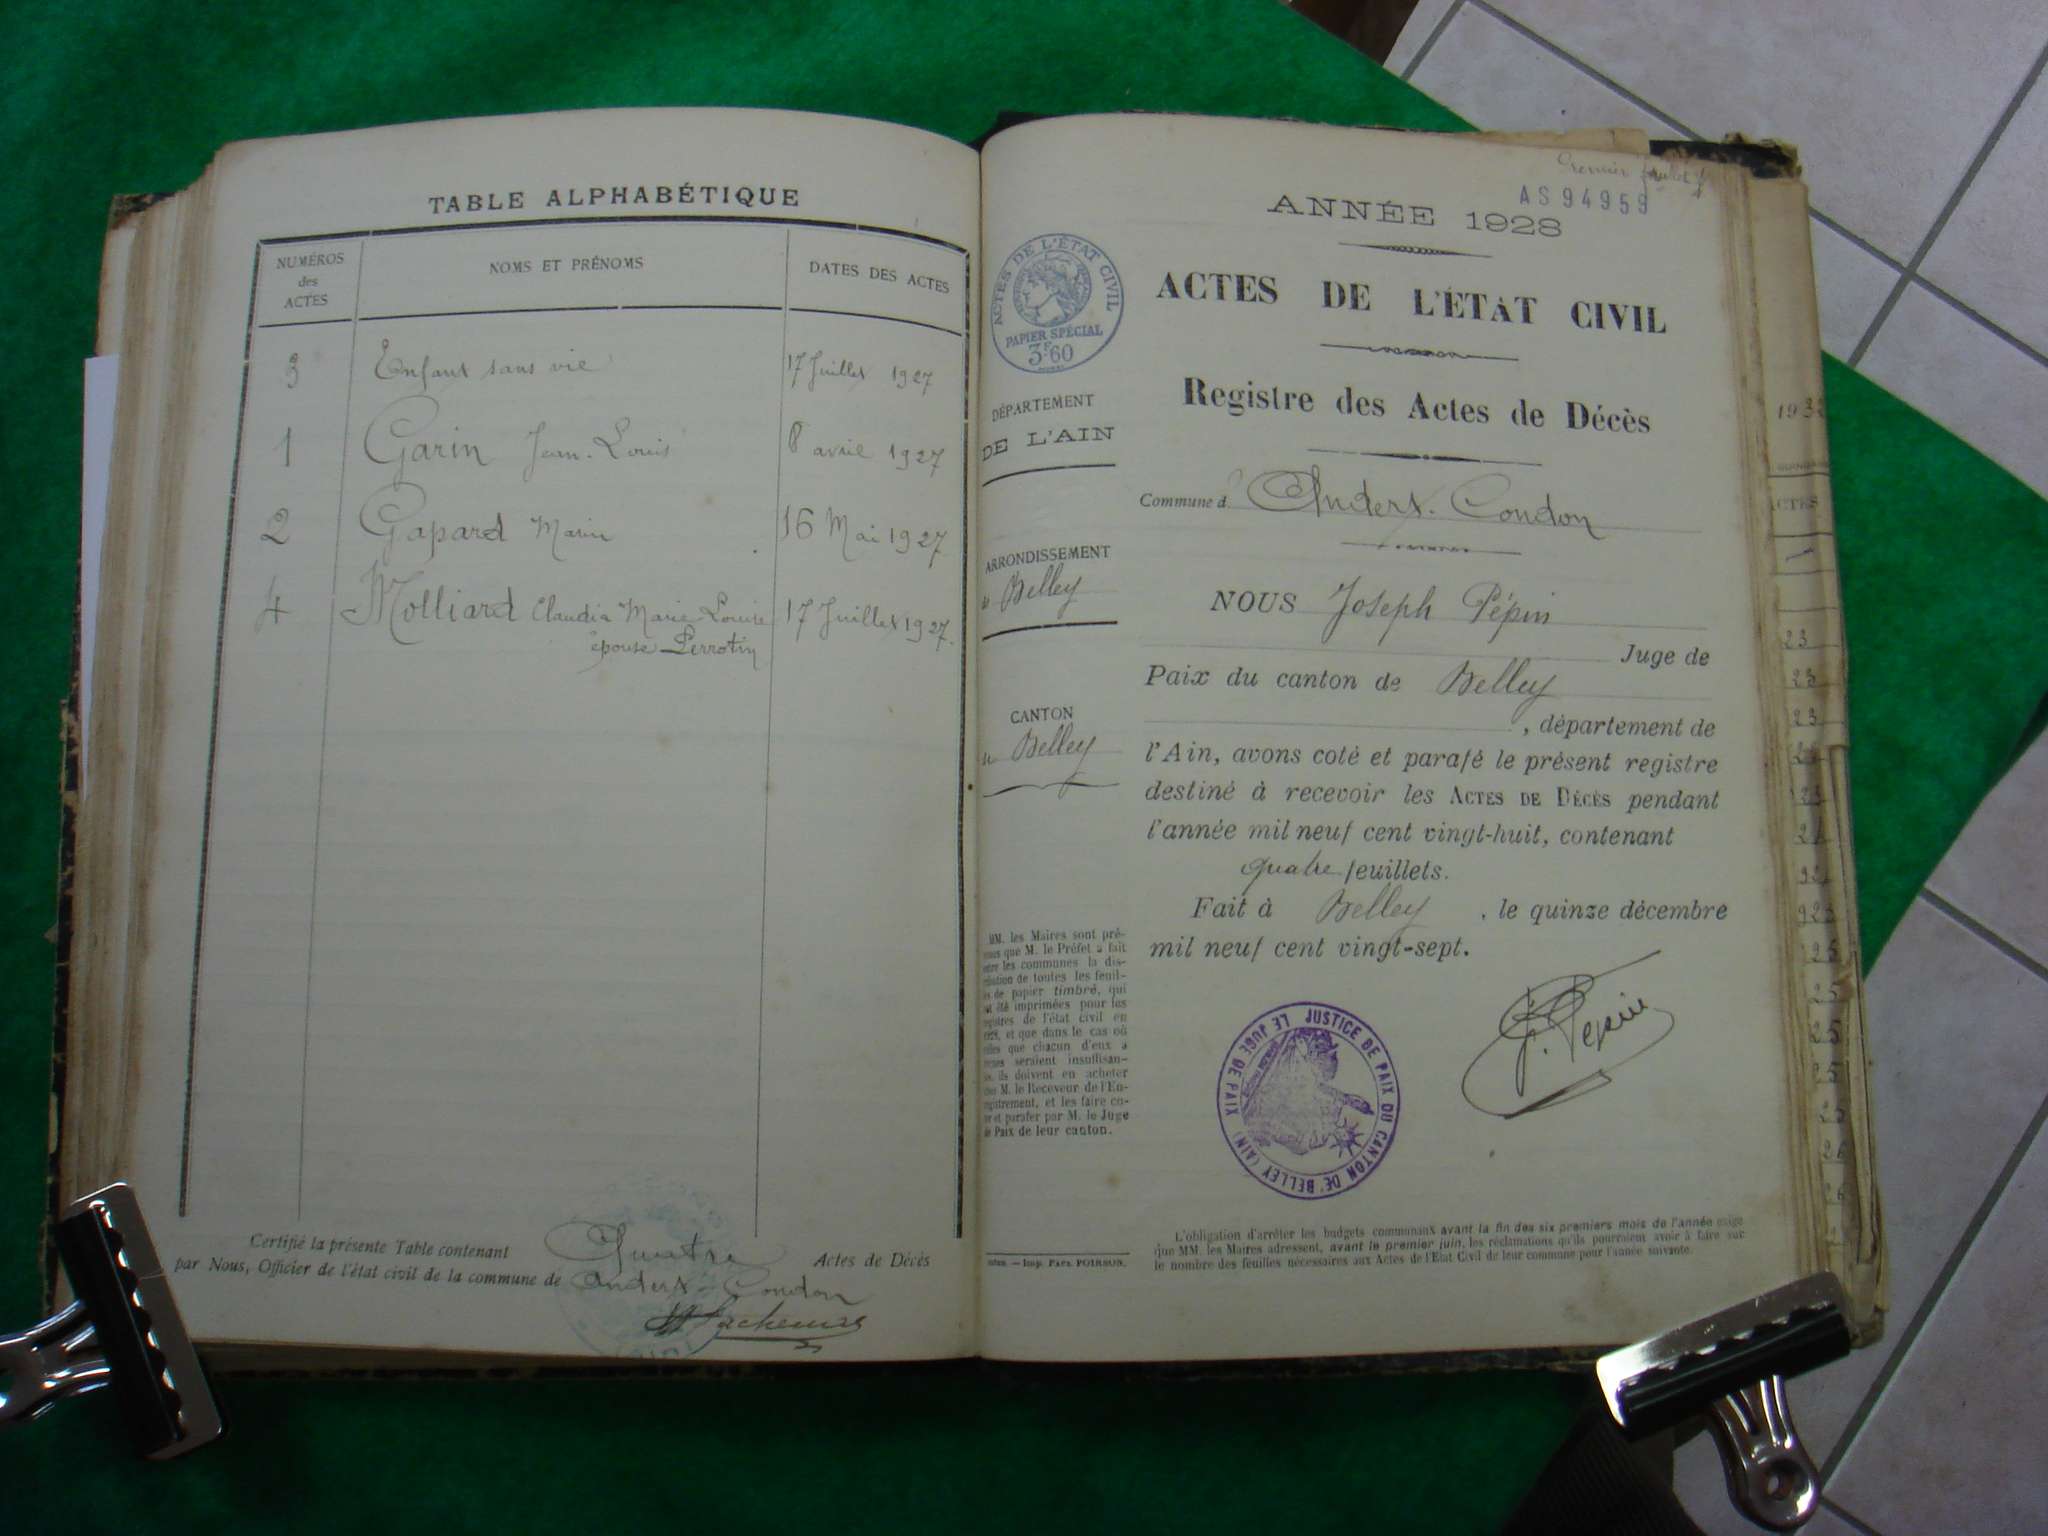 TABLE ALPHABÉTIQUE
NUMÉROS
des
ACTES
NOMS ET PRÉNOMS
DATES DES ACTES
3 Enfant sans vie 17 Juillet 1927
1 Garin Jean-Louis 8 avril 1927
2 Gapard Marin 16 Mai 1927
4 Molliard Claudia Marie-Louise 17 Juillet 1927.
épouse Perrotin
Certifié la présente Table contenant Quatre Actes de Décès
par Nous, Officier de l'état civil de la commune de Andert-Condon
Premier feuillet
AS 94959
ANNÉE 1928
ACTES DE L'ÉTAT CIVIL
PAPIER SPÉCIAL
3F60
ACTES DE L'ÉTAT CIVIL
Registre des Actes de Décès
DÉPARTEMENT
DE L'AIN
Commune d'Andert-Condon
ARRONDISSEMENT
de Belley
CANTON
de Belley
NOUS Joseph Pépin
Juge de
Paix du canton de Belley
, département de
l'Ain, avons coté et parafé le présent registre
destiné à recevoir les ACTES DE DÉCÈS pendant
l'année mil neuf cent vingt-huit, contenant
quatre feuillets.
Fait à Belley, le quinze décembre
mil neuf cent vingt-sept.
J. Pépin
LE JUGE DE PAIX JUSTICE DE PAIX DU CANTON DE BELLEY (AIN)
MM. les Maires sont pré-
que M. le Préfet a fait
les communes la dis-
de toutes les feuil-
de papier timbré, qui
été imprimées pour les
de l'état civil en
et que dans le cas où
que chacun d'eux a
seraient insuffisan-
ils doivent en acheter
M. le Receveur de l'En-
et les faire co-
et parafer par M. le Juge
de Paix de leur canton.
Imp. PAUL POIRSON.
L'obligation d'arrêter les budgets communaux avant la fin des six premiers mois de l'année exige
que MM. les Maires adressent, avant le premier juin, les réclamations qu'ils pourraient avoir à faire sur
le nombre des feuilles nécessaires aux Actes de l'Etat Civil de leur commune pour l'année suivante.
ACTES
23
23
23